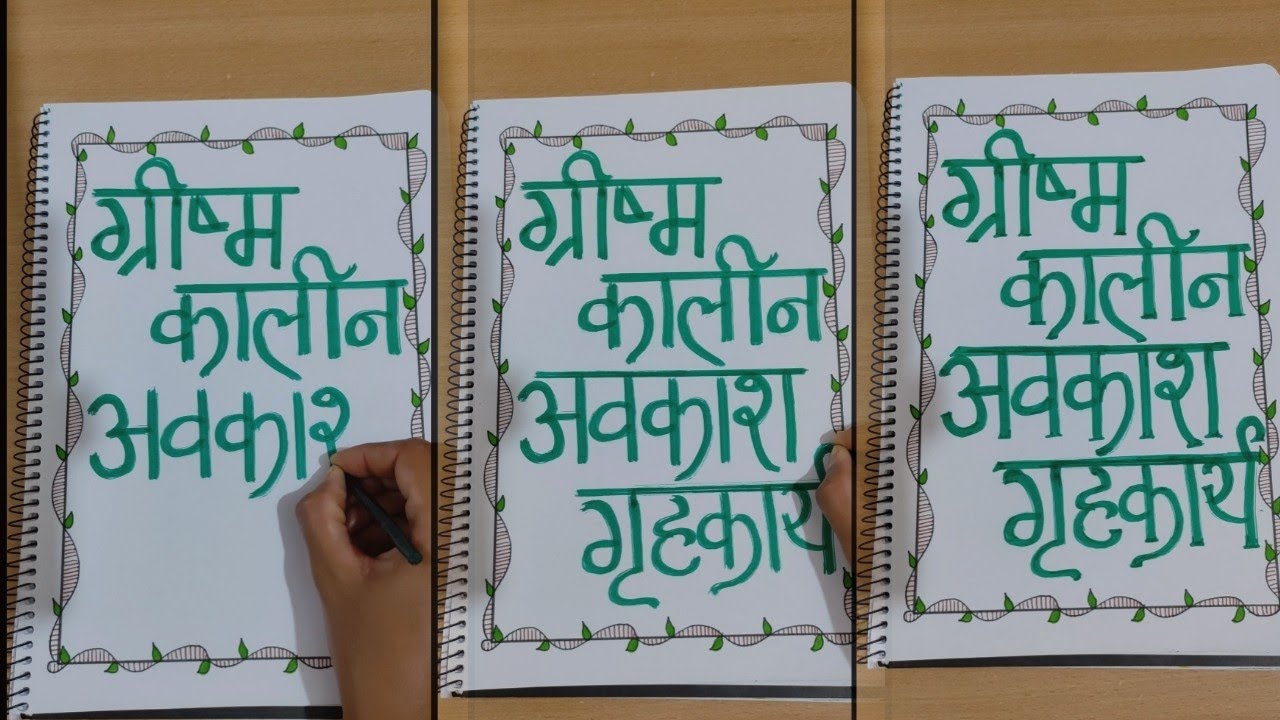 ग्रीष्म
कालीन
अवकार
ग्रीष्म
कालीन
अवकाश
गृहकार्य
ग्रीष्म
कालीन
अवकाश
गृहकार्य